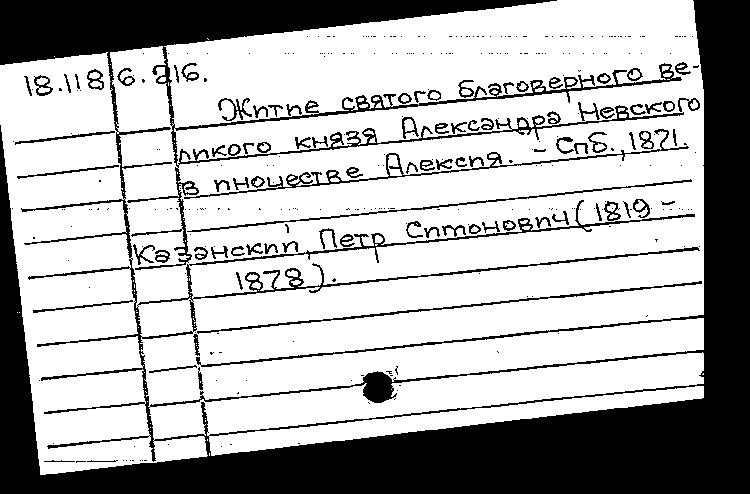 18.118.6.216.
Житие святого благоверного ве-
ликого князя Александра Невского
в иночестве Алексия. - Спб., 1871.
Казанский, Петр Симонович (1819 -
1878).